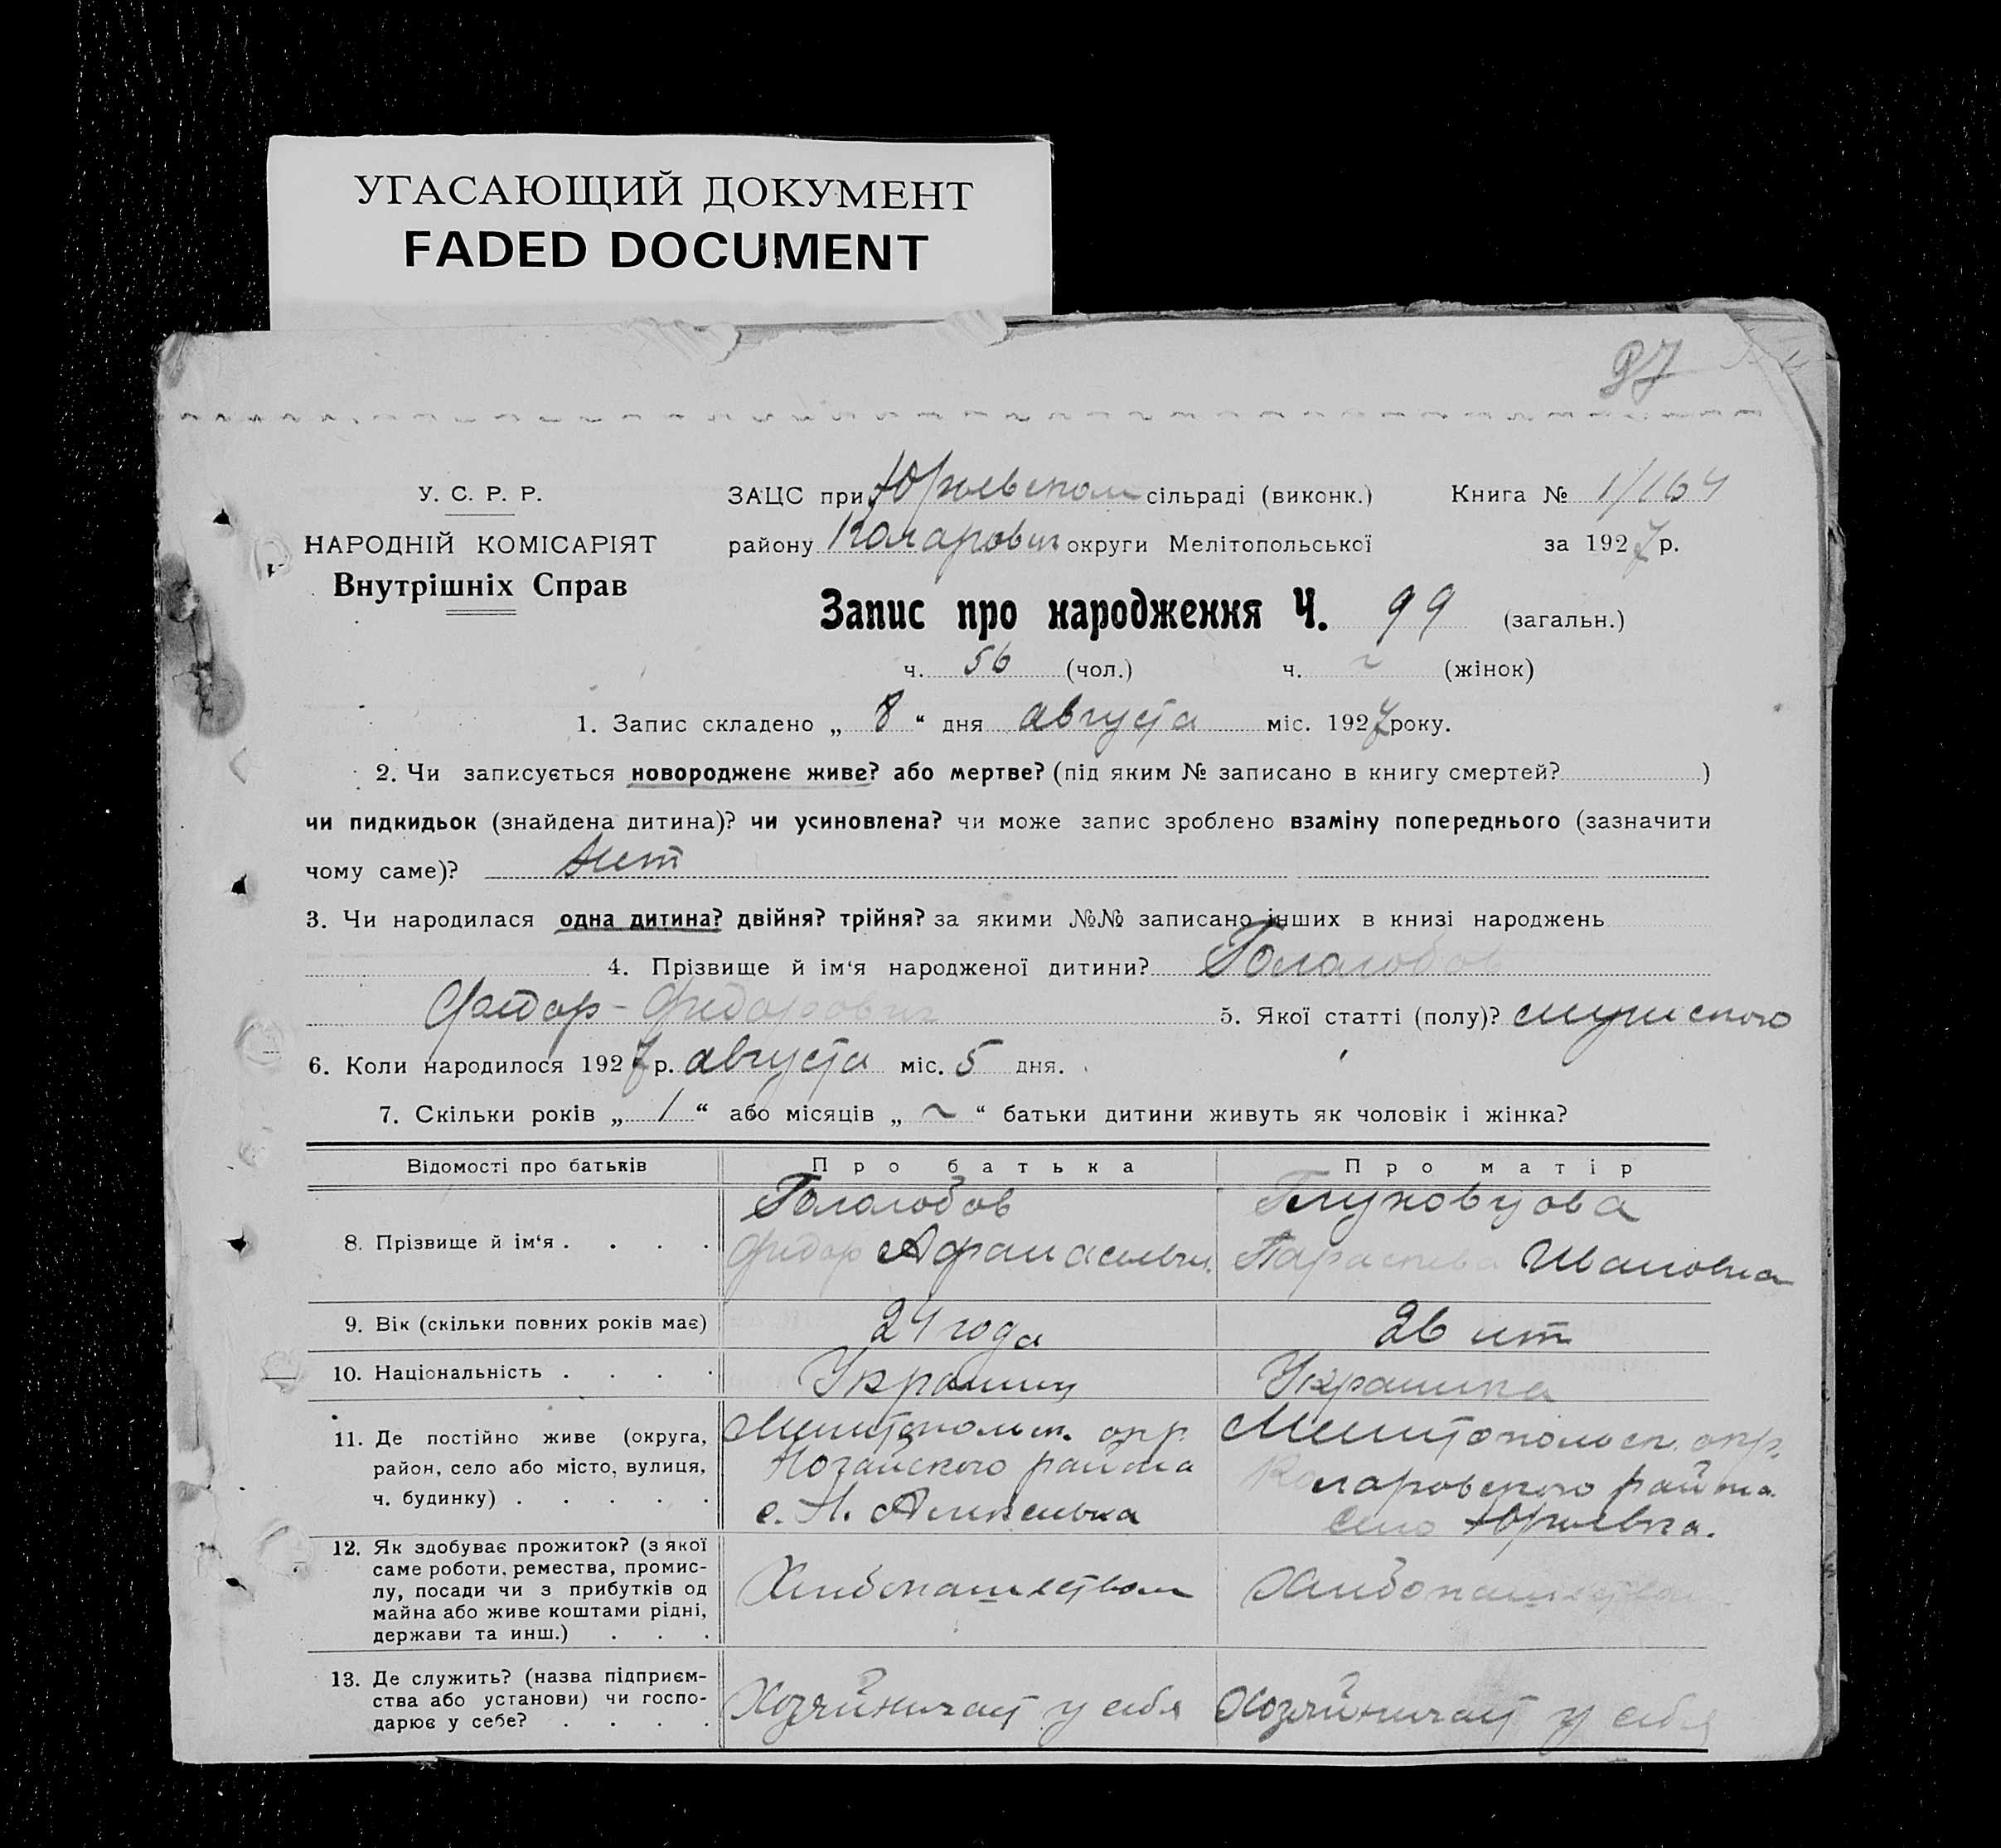 УГАСАЮЩИЙ ДОКУМЕНТ
FADED DOCUMENT
У. С. Р. Р.
НАРОДНІЙ КОМІСАРІЯТ
Внутрішніх Справ
ЗАЦС при Юрьевском сільраді (виконк.) Книга № 1/164
району Коларович округи Мелітопольської за 1927 р.
Запис про народження Ч. 99 (загальн.)
ч. 56 (чол.) ч. ~ (жінок)
1. Запис складено „ 8 “ дня августа міс. 1927 року.
2. Чи записується новороджене живе? або мертве? (під яким № записано в книгу смертей? )
чи пидкидьок (знайдена дитина)? чи усиновлена? чи може запис зроблено взаміну попереднього (зазначити
чому саме)? Нет
3. Чи народилася одна дитина? двійня? трійня? за якими №№ записано інших в книзі народжень
4. Прізвище й ім‘я народженої дитини? Гололобов
Федор - Федорович 5. Якої статті (полу)? мужского
6. Коли народилося 1927 р. августа міс. 5 дня.
7. Скільки років „ 1 “ або місяців „ ~ “ батьки дитини живуть як чоловік і жінка?
Відомості про батьків Про батька Про матір
8. Прізвище й ім‘я . . . .
Гололобов
Федор Афанасьевич.
Глуховцова
Параскева Ивановна
9. Вік (скільки повних років має) 24 года 26 лет
10. Національність . . . . Украинец Украинка
11. Де постійно живе (округа,
район, село або місто, вулиця,
ч. будинку) . . . . .
Мелитопольск. окр.
Ногайского района
с. Н. Алексеевка
Мелитопольск. окр.
Коларовского района.
село Юрьевка.
12. Як здобуває прожиток? (з якої
саме роботи, ремества, промис-
лу, посади чи з прибутків од
майна або живе коштами рідні,
держави та инш.) . . .
Хлебопашеством
Хлебопашеством
13. Де служить? (назва підприєм-
ства або установи) чи госпо-
дарює у себе? . . . .
Хозяйничает у себя
Хозяйничает у себя